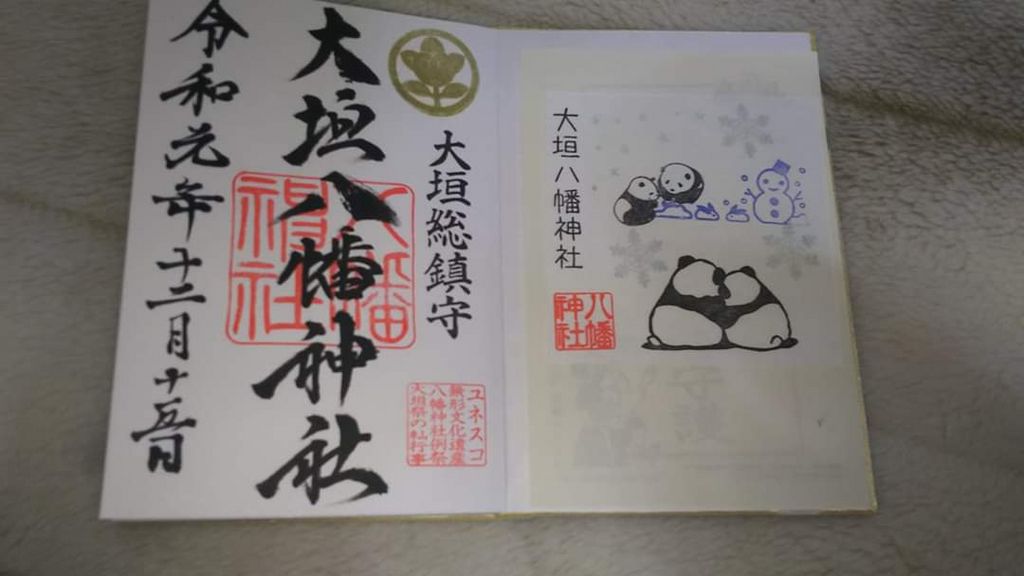 大垣総鎮守
大垣八幡神社
八幡神社
令和元年十二月十五日
ユネスコ
無形文化遺産
八幡神社例祭
大垣祭の𨋳行事
大垣八幡神社
八幡
神社
守護